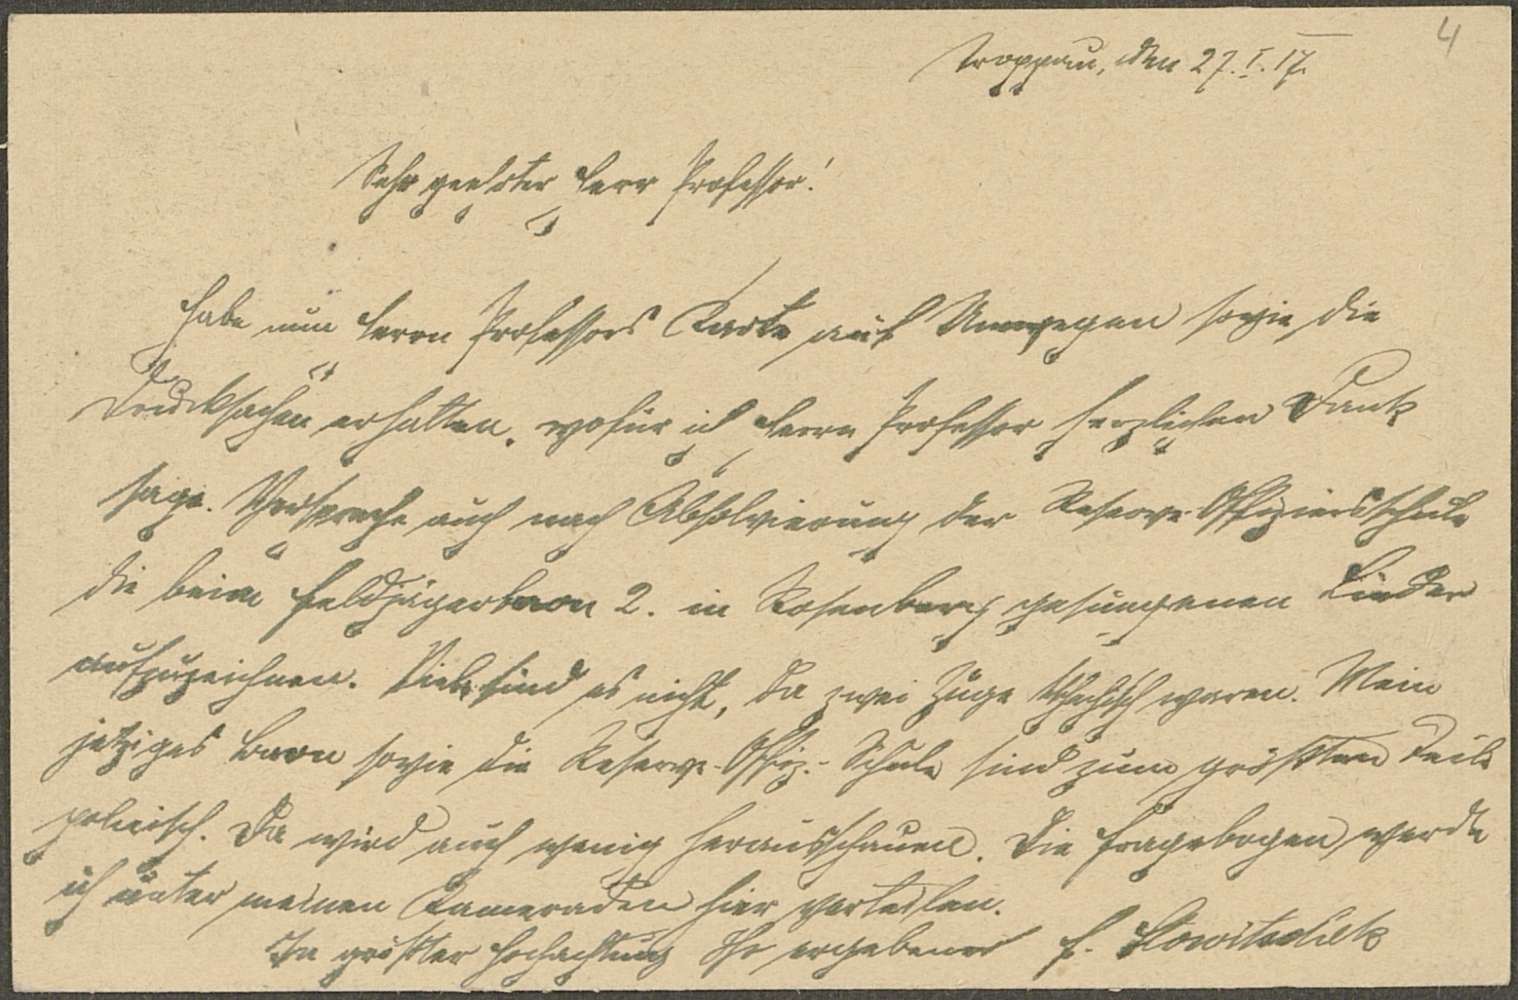 4
Troppau, den 27. I. 17.
Sehr geehrter Herr Professor!
Habe nun Herrn Professors Karte auf Umwegen sowie die
Drucksachen erhalten, wofür ich Herrn Professor herzlichen Dank
sage. Verspreche auch nach Absolvierung der Reserve-Offiziersschule
die beim Feldjägerbaon 2. in Rosenberg gesungenen Lieder
aufzuzeichnen. Viele sind es nicht, da zwei Züge tschechisch waren. Mein
jetziges Baon sowie die Reserve-Offiz.-Schule sind zum größten Teile
polnisch. Da wird auch wenig herausschauen. Die Fragebogen werde
ich unter meinen Kameraden hier verteilen.
In größter Hochachtung Ihr ergebener F.